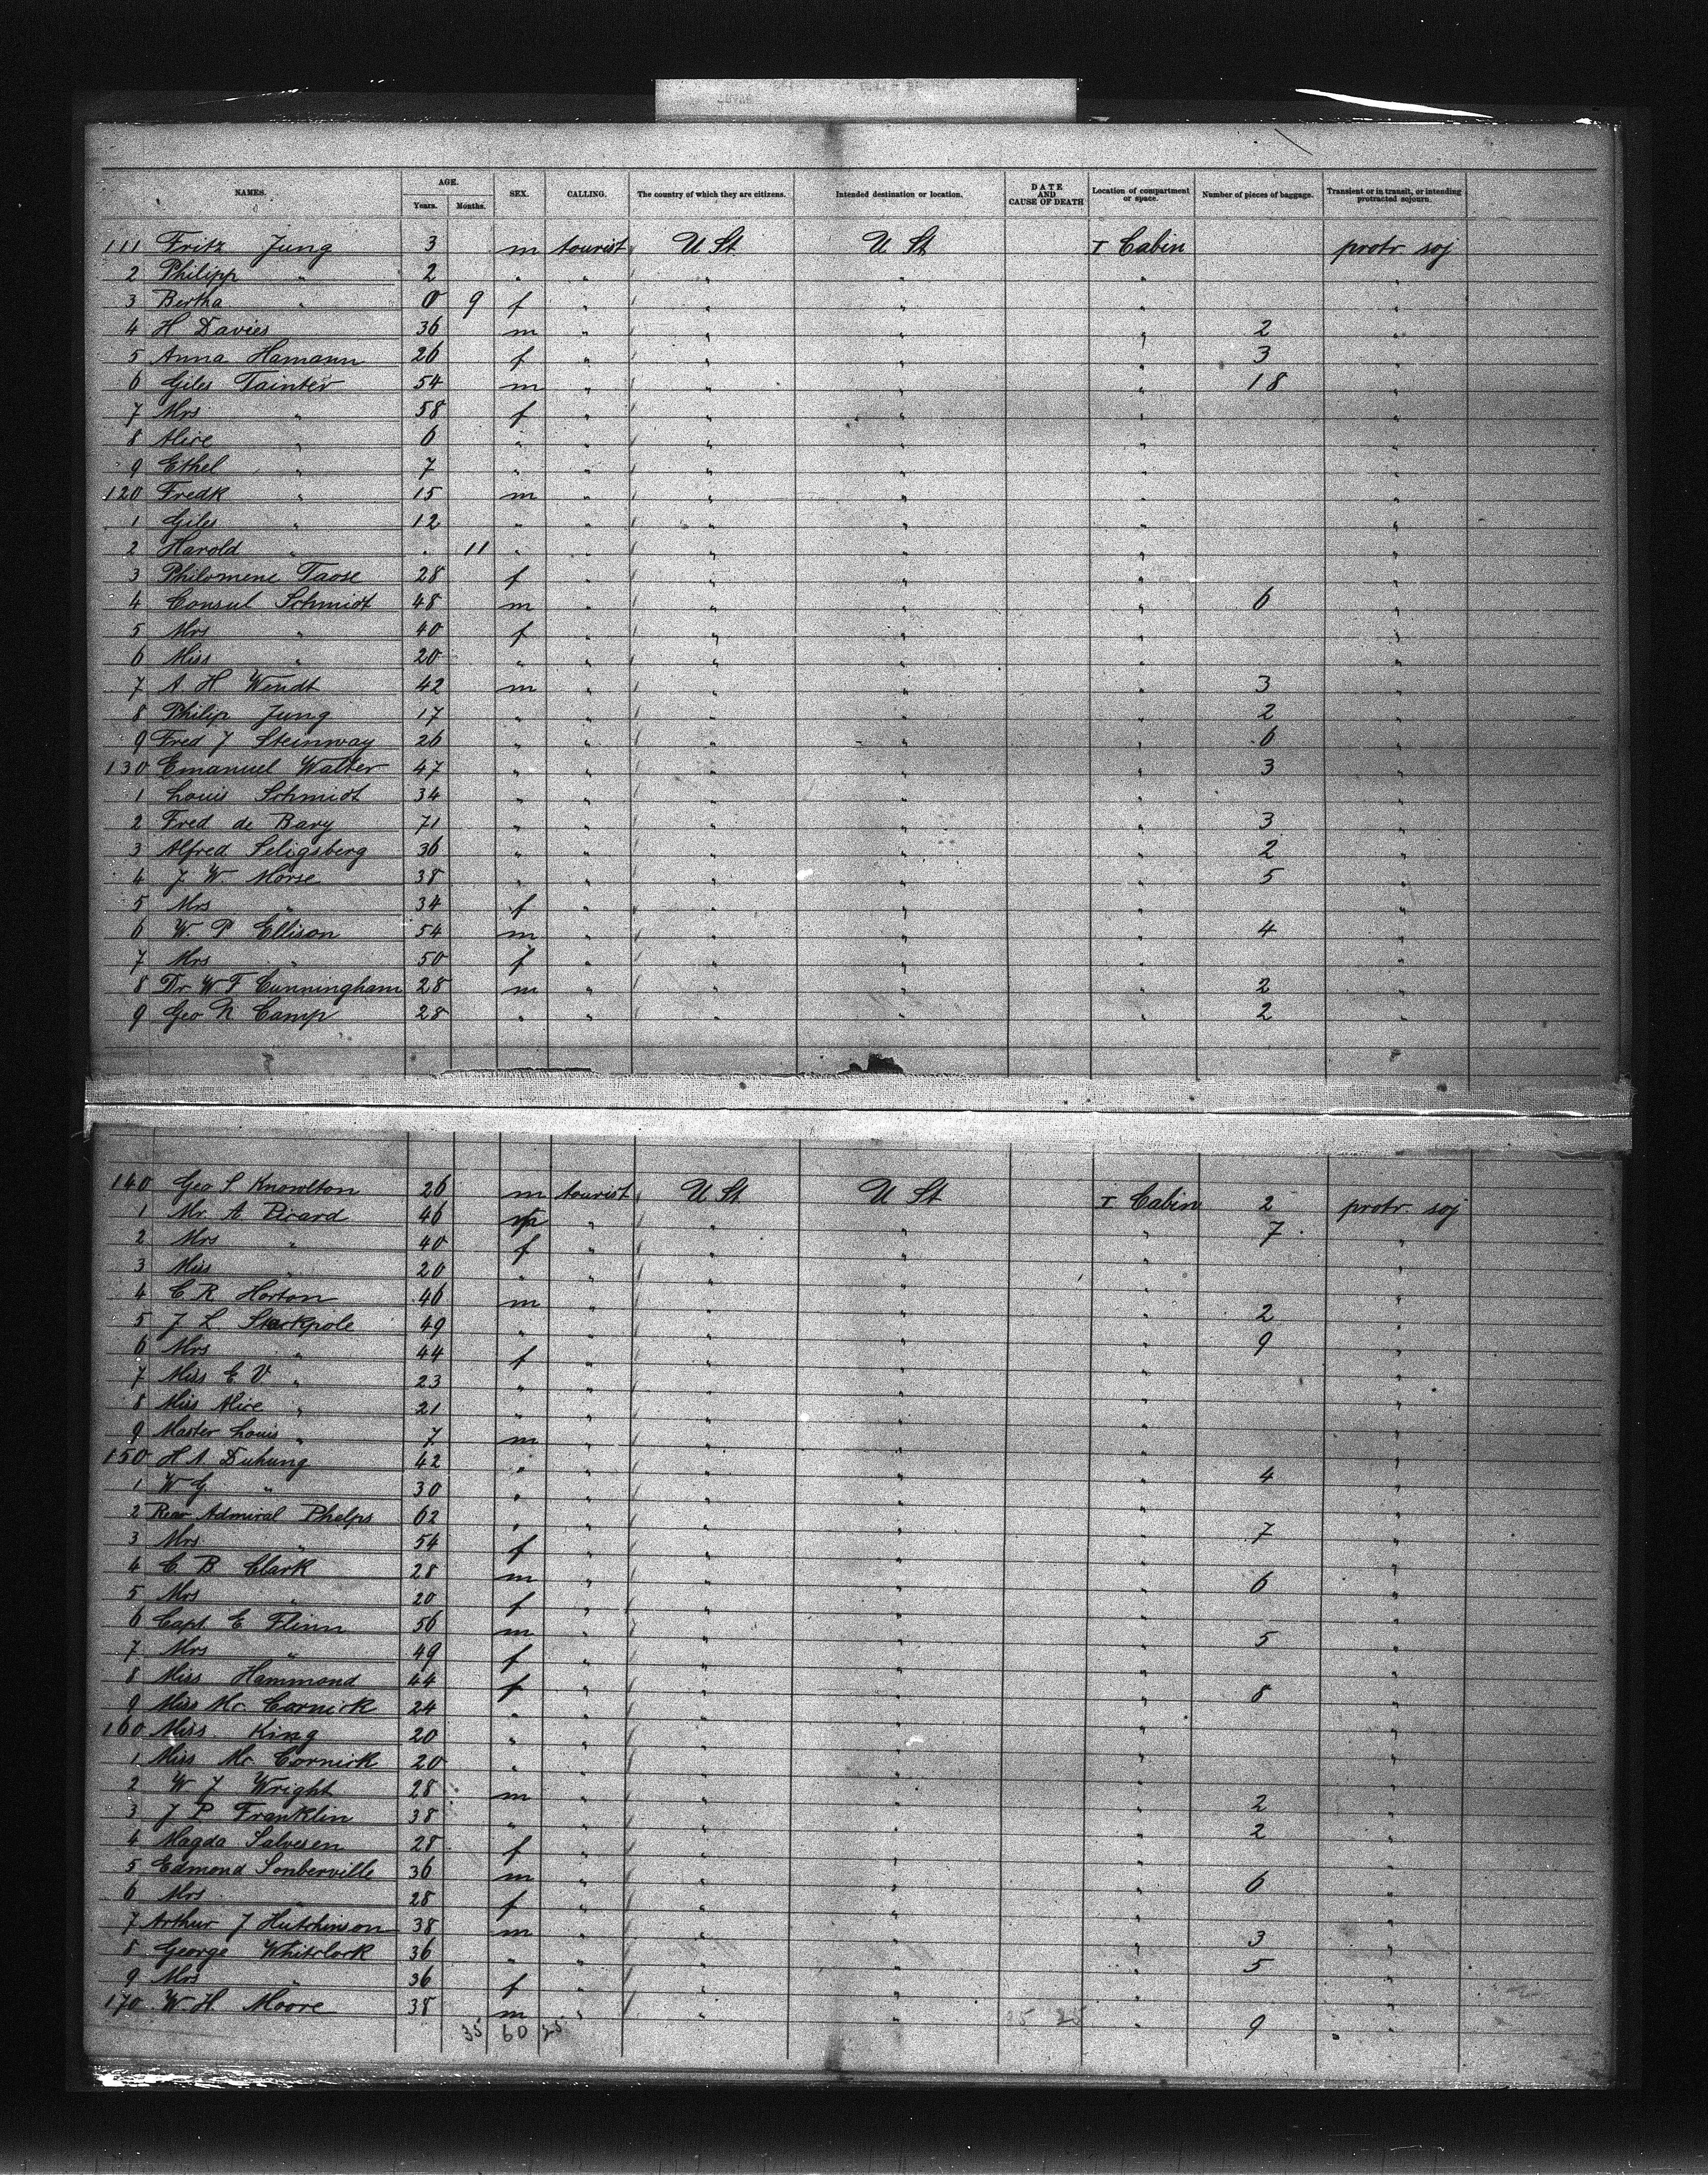 NAMES. AGE. Years. Months. SEX. CALLING. The country of which they are citizens. Intended destination or location. DATE AND CAUSE OF DEATH Location of compartment or space. Number of pieces of baggage. Transient or in transit, or intending protracted sojourn.
111 Fritz Jung 3 m tourist U St U St I Cabin protr. soj
2 Philipp " 2 " " " " " "
3 Bertha " 0 9 f " " " " "
4 H Davies 36 m " " " " 2 "
5 Anna Hamann 26 f " " " " 3 "
6 Giles Tainter 54 m " " " " 18 "
7 Mrs " 58 f " " " " "
8 Alice " 6 " " " " " "
9 Ethel " 7 " " " " " "
120 Fredk " 15 m " " " " "
1 Giles " 12 " " " " " "
2 Harold " " 11 " " " " " "
3 Philomene Taose 28 f " " " " "
4 Consul Schmidt 48 m " " " " 6 "
5 Mrs " 40 f " " " " "
6 Miss " 20 " " " " " "
7 A H Wendt 42 m " " " " 3 "
8 Philip Jung 17 " " " " " 2 "
9 Fred J Steinway 26 " " " " " 6 "
130 Emanuel Walter 47 " " " " " 3 "
1 Louis Schmidt 34 " " " " " "
2 Fred de Bary 71 " " " " " 3 "
3 Alfred Seligsberg 36 " " " " " 2 "
4 J. W. Morse 38 " " " " " 5 "
5 Mrs " 34 f " " " " "
6 W. P Ellison 54 m " " " " 4 "
7 Mrs " 50 f " " " " "
8 Dr W F Cunningham 28 m " " " " 2 "
9 Geo N Camp 28 " " " " " 2 "
140 Geo S Knowlton 26 m tourist U St U St I Cabin 2 protr. soj
1 Mr. A. Picard 46 m " " " " 7 "
2 Mrs " 40 f " " " " "
3 Miss " 20 " " " " " "
4 C R Horton 46 m " " " " 2 "
5 J L Stackpole 49 " " " " " 9 "
6 Mrs " 44 f " " " " "
7 Miss E V " 23 " " " " " "
8 Miss Alice " 21 " " " " " "
9 Master Louis " 7 m " " " " "
150 H A Duhung 42 " " " " " 4 "
1 W G " 30 " " " " " "
2 Rear Admiral Phelps 62 " " " " " 7 "
3 Mrs " 54 f " " " " "
4 C B Clark 28 m " " " " 6 "
5 Mrs " 20 f " " " " "
6 Capt. E Flinn 56 m " " " " 5 "
7 Mrs " 49 f " " " " "
8 Miss Hammond 44 f " " " " 8 "
9 Miss Mc Cornick 24 " " " " " "
160 Miss King 20 " " " " " "
1 Miss Mc Cornick 20 " " " " " "
2 W J Wright 28 m " " " " 2 "
3 J P Franklin 38 " " " " " 2 "
4 Magda Salvesen 28 f " " " " "
5 Edmond Sonberville 36 m " " " " 6 "
6 Mrs " 28 f " " " " "
7 Arthur J Hutchinson 38 m " " " " 3 "
8 George Whitelock 36 " " " " " 5 "
9 Mrs " 36 f " " " " "
170 W. H Moore 38 m " " " " 9 "
35 60 25